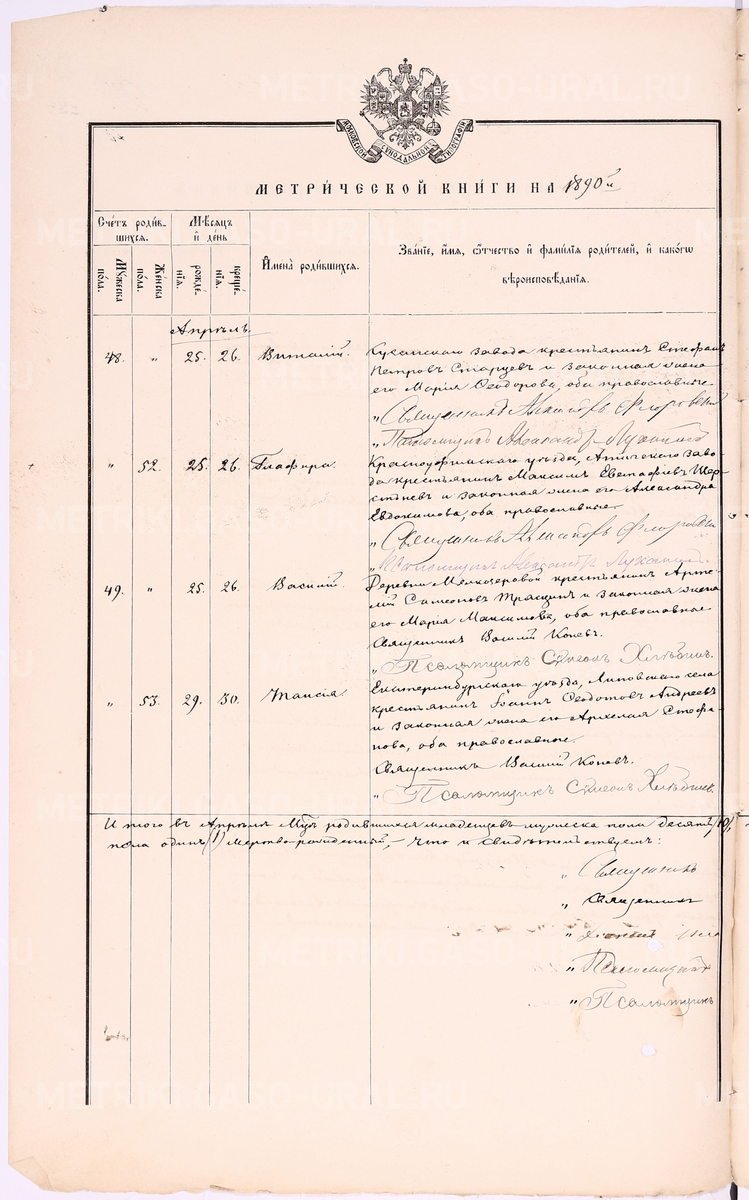 МОСКОВСКОЙ СѴНОДАЛЬНОЙ ТИПОГРАФІИ
МЕТРИ́ЧЕСКОЙ КНИ́ГИ НА 1890й
Сче́тъ роди́в-
шихся.
Му́жеска по́ла.
Же́нска по́ла.
Мѣ́сяцъ
и де́нь
рожде́-
нія.
креще́-
нія.
Имена̀ роди́вшихся.
Зва́ніе, и́мя, о́тчество и фами́лія роди́телей, и како́гѡ
вѣроисповѣ́данія.
Апрѣль.
48. „ 25. 26. Виталій. Кусинскаго завода крестьянинъ Стефанъ
Петровъ Старцевъ и законная жена
его Марія Ѳеодорова, оба православные.
„ Священникъ Флоровскій
„ Псаломщикъ Александръ
„ 52. 25. 26. Глафира. Красноуфимскаго уѣзда, Атигскаго заво-
да крестьянинъ Максимъ Евстафіевъ Шер-
стневъ и законная жена его Александра
Евдокимова, оба православные.
„ Священникъ Флоровскій
„ Псаломщикъ Александръ
49. „ 25. 26. Василій. Деревни Мелкозеровой крестьянинъ Арте-
мій Самсоновъ и законная жена
его Марія Максимова, оба православные
Священникъ Василій Коневъ.
„ Псаломщикъ Симеонъ Хлѣбинъ.
„ 53. 29. 30. Таисія. Екатеринбургскаго уѣзда, Липовскаго села
крестьянинъ Іоаннъ Ѳеодотовъ Андреевъ
и законная жена его Архелая Стефа-
нова, оба православные.
Священникъ Василій Коневъ.
„ Псаломщикъ Симеонъ Хлѣбинъ.
Итого въ Апрѣлѣ родившихся младенцевъ мужеска пола десять (10),
пола одинъ (1) мертво-рожденный, что и свидѣтельствуемъ:
„ Священникъ
„ Священникъ
„ Псаломщикъ
„ Псаломщикъ
METRIKI.GASO-URAL.RU